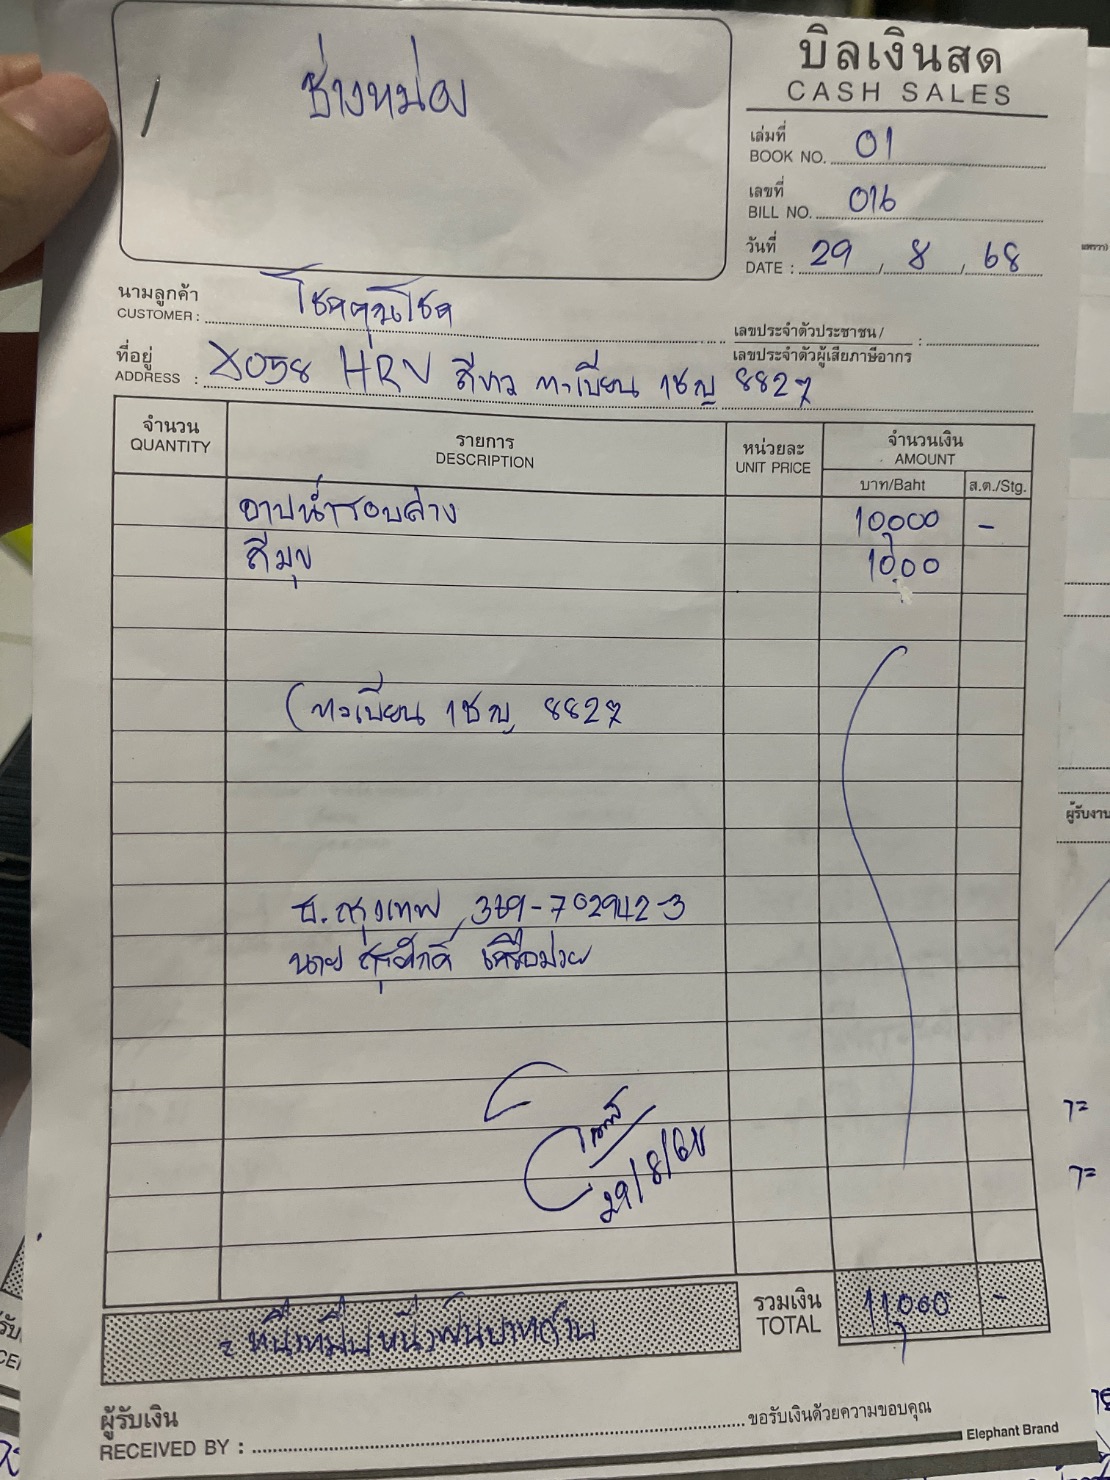 ช่างหน่อง
บิลเงินสด
CASH SALES
เล่มที่
BOOK NO. 01
เลขที่
BILL NO. 016
วันที่
DATE : 29 / 8 / 68
นามลูกค้า
CUSTOMER : โชคคุณโชค
เลขประจำตัวประชาชน /
เลขประจำตัวผู้เสียภาษีอากร :
ที่อยู่
ADDRESS : X058 HRV สีขาว ทะเบียน 1ชญ 8827
จำนวน
QUANTITY
รายการ
DESCRIPTION
หน่วยละ
UNIT PRICE
จำนวนเงิน
AMOUNT
บาท/Baht ส.ต./Stg.
อาบน้ำรอบล่าง 10,000 -
สีมุข 1000
(ทะเบียน 1ชญ 8827
ธ.กรุงเทพ 379-702942-3
นาย สุรศักดิ์ เครือม่วย
29/8/68
= หนึ่งหมื่นหนึ่งพันบาทถ้วน
รวมเงิน
TOTAL 11,000 -
ผู้รับเงิน
RECEIVED BY : ขอรับเงินด้วยความขอบคุณ
Elephant Brand
ผู้รับงาน